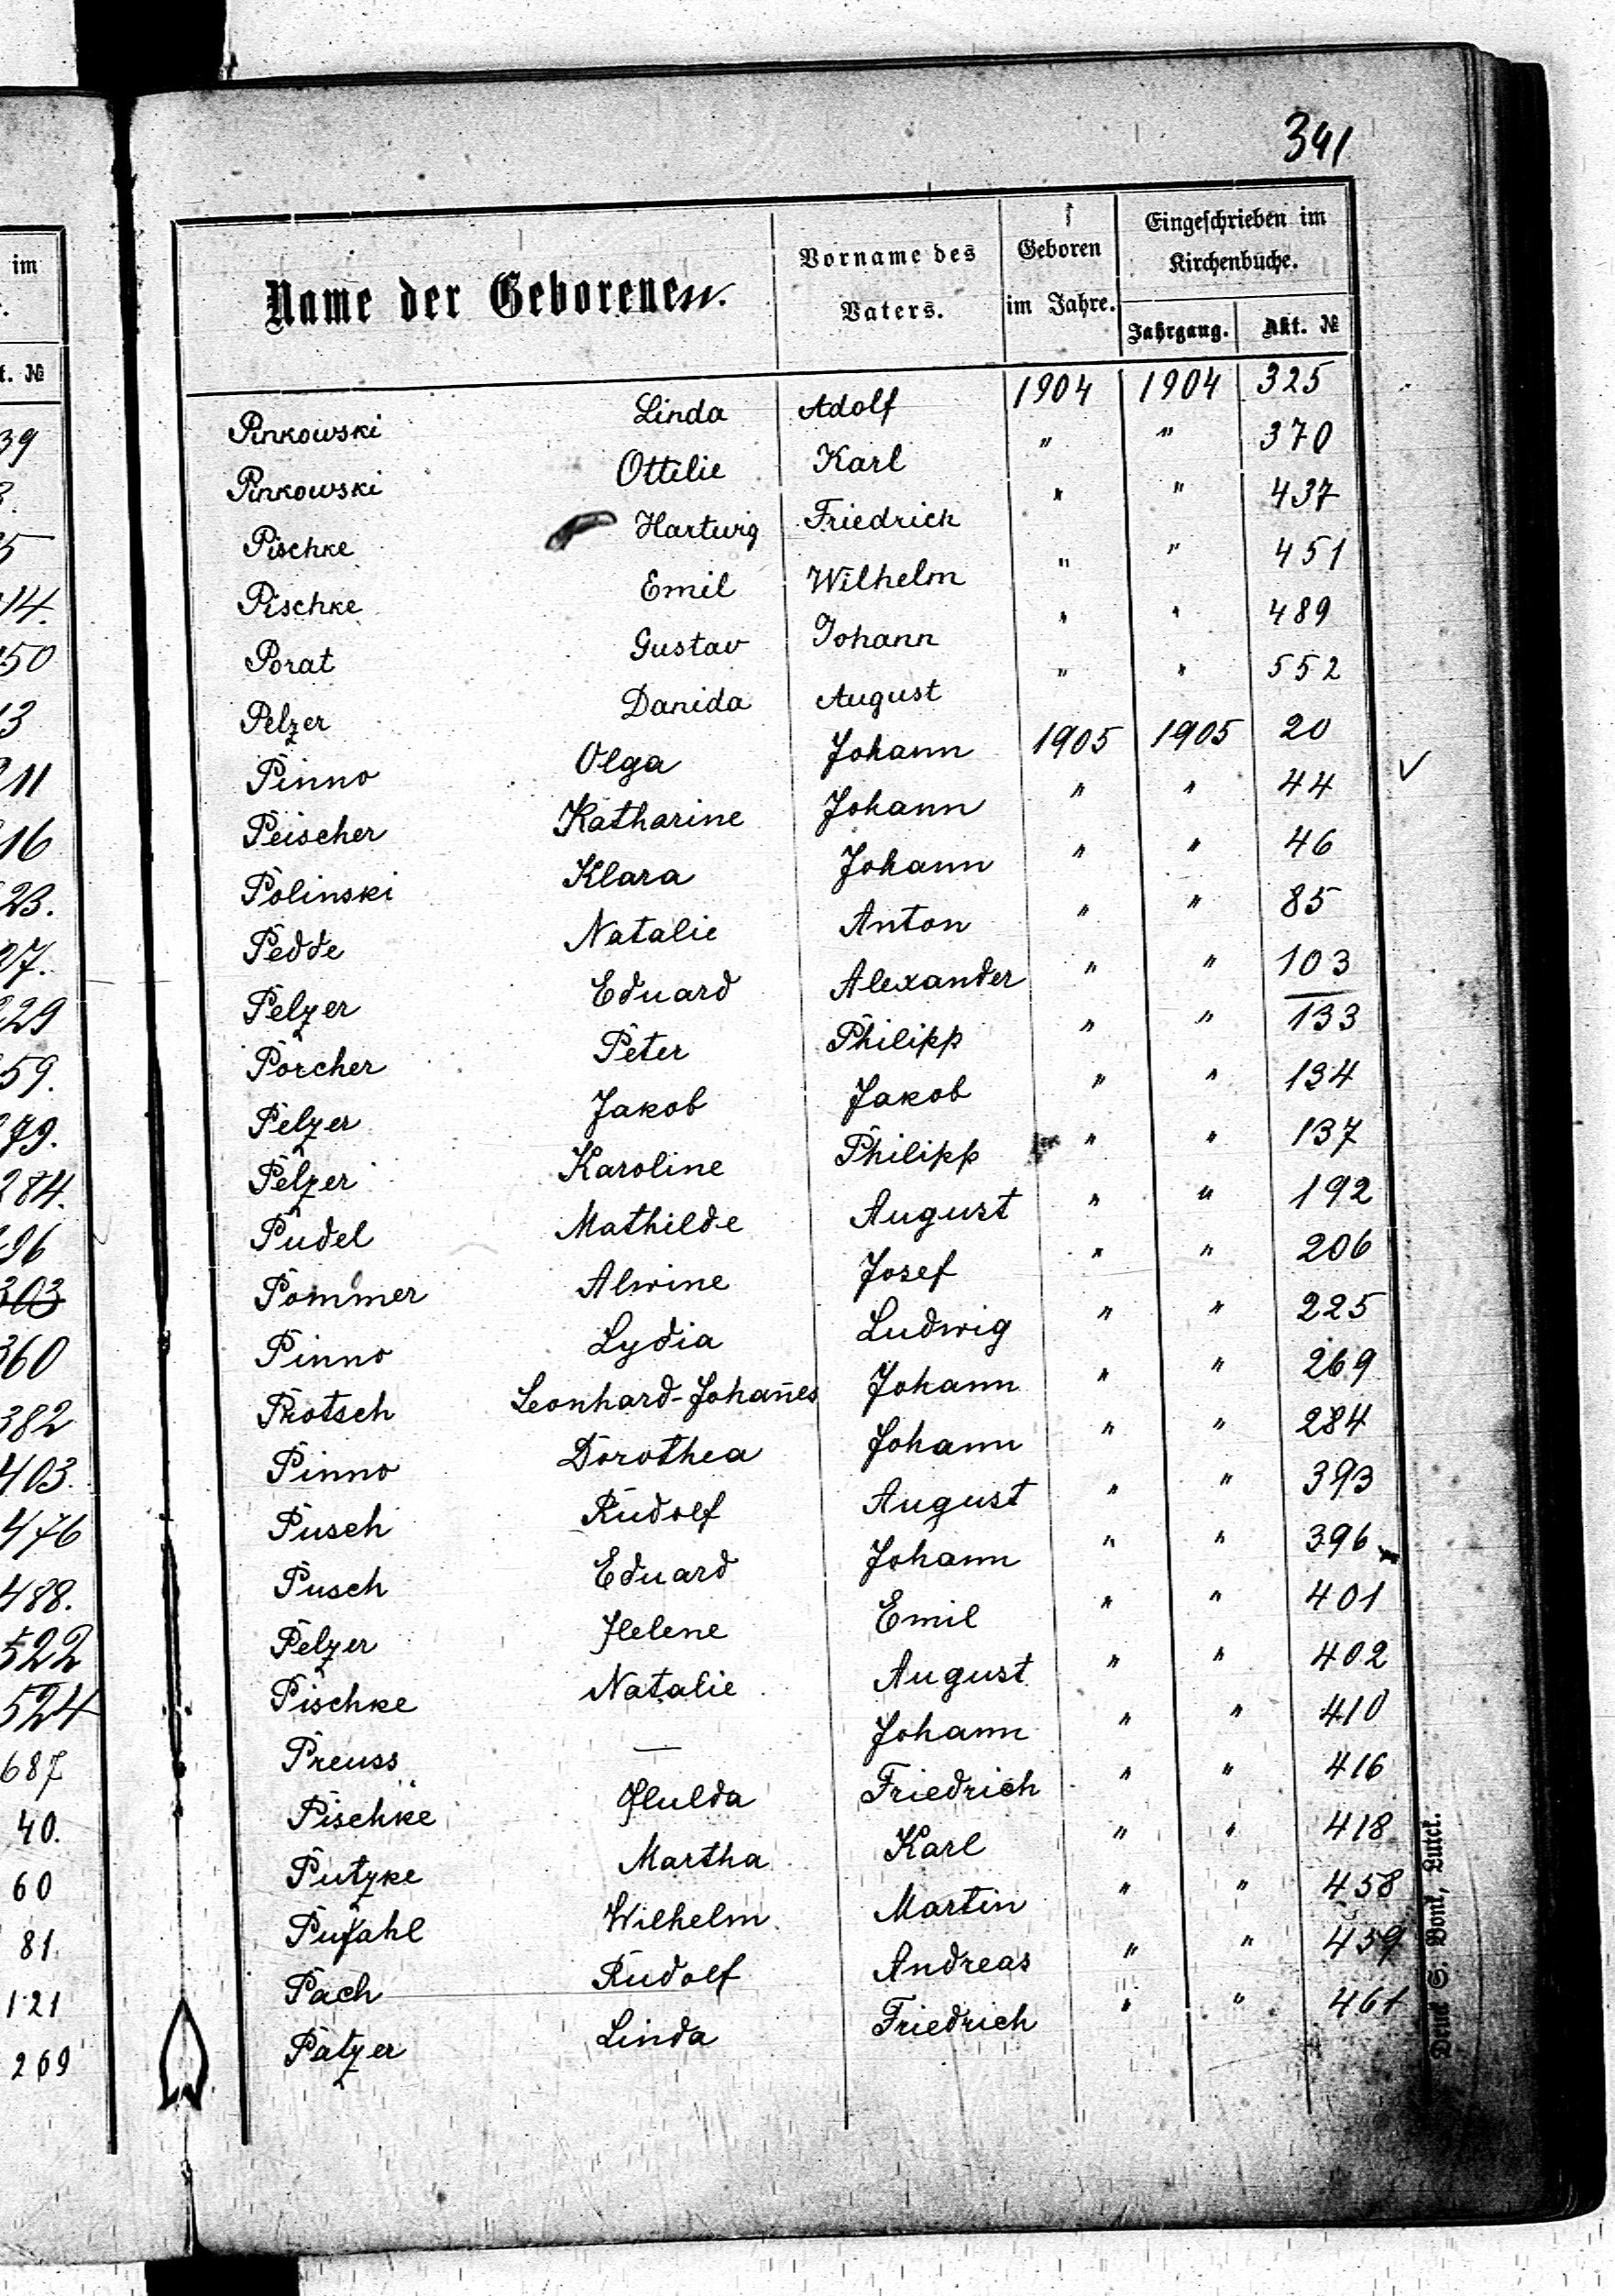 341
im
t. №
39
8.
5
14.
50
13
211
16
23.
27.
229
59.
279.
284.
296
303
360
382
403.
476
488.
522
524
687
40.
60
81
121
269
Name der Geborenen.
Vorname des Vaters.
Geboren im Jahre.
Eingeschrieben im Kirchenbuche.
Jahrgang. Akt. №
Pinkowski Linda Adolf 1904 1904 325
Pinkowski Ottilie Karl " " 370
Pischke Hartwig Friedrich " " 437
Pischke Emil Wilhelm " " 451
Porat Gustav Johann " " 489
Pelzer Danida August " " 552
Pinno Olga Johann 1905 1905 20
Peischer Katharine Johann " " 44 ✓
Polinski Klara Johann " " 46
Pedde Natalie Anton " " 85
Pelzer Eduard Alexander " " 103
Porcher Peter Philipp " " 133
Pelzer Jakob Jakob " " 134
Pelzer Karoline Philipp " " 137
Pudel Mathilde August " " 192
Pommer Alwine Josef " " 206
Pinno Lydia Ludwig " " 225
Protsch Leonhard-Johañes Johann " " 269
Pinno Dorothea Johann " " 284
Pusch Rudolf August " " 393
Pusch Eduard Johann " " 396
Pelzer Helene Emil " " 401
Pischke Natalie August " " 402
Preuss — Johann " " 410
Pischke Hulda Friedrich " " 416
Putzke Martha Karl " " 418
Pufahl Wilhelm Martin " " 458
Pach Rudolf Andreas " " 459
Patzer Linda Friedrich " " 461
Druck S. Bonk, Lutck.